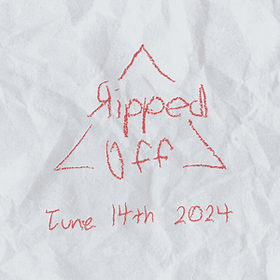 Ripped
Off
June 14th 2024